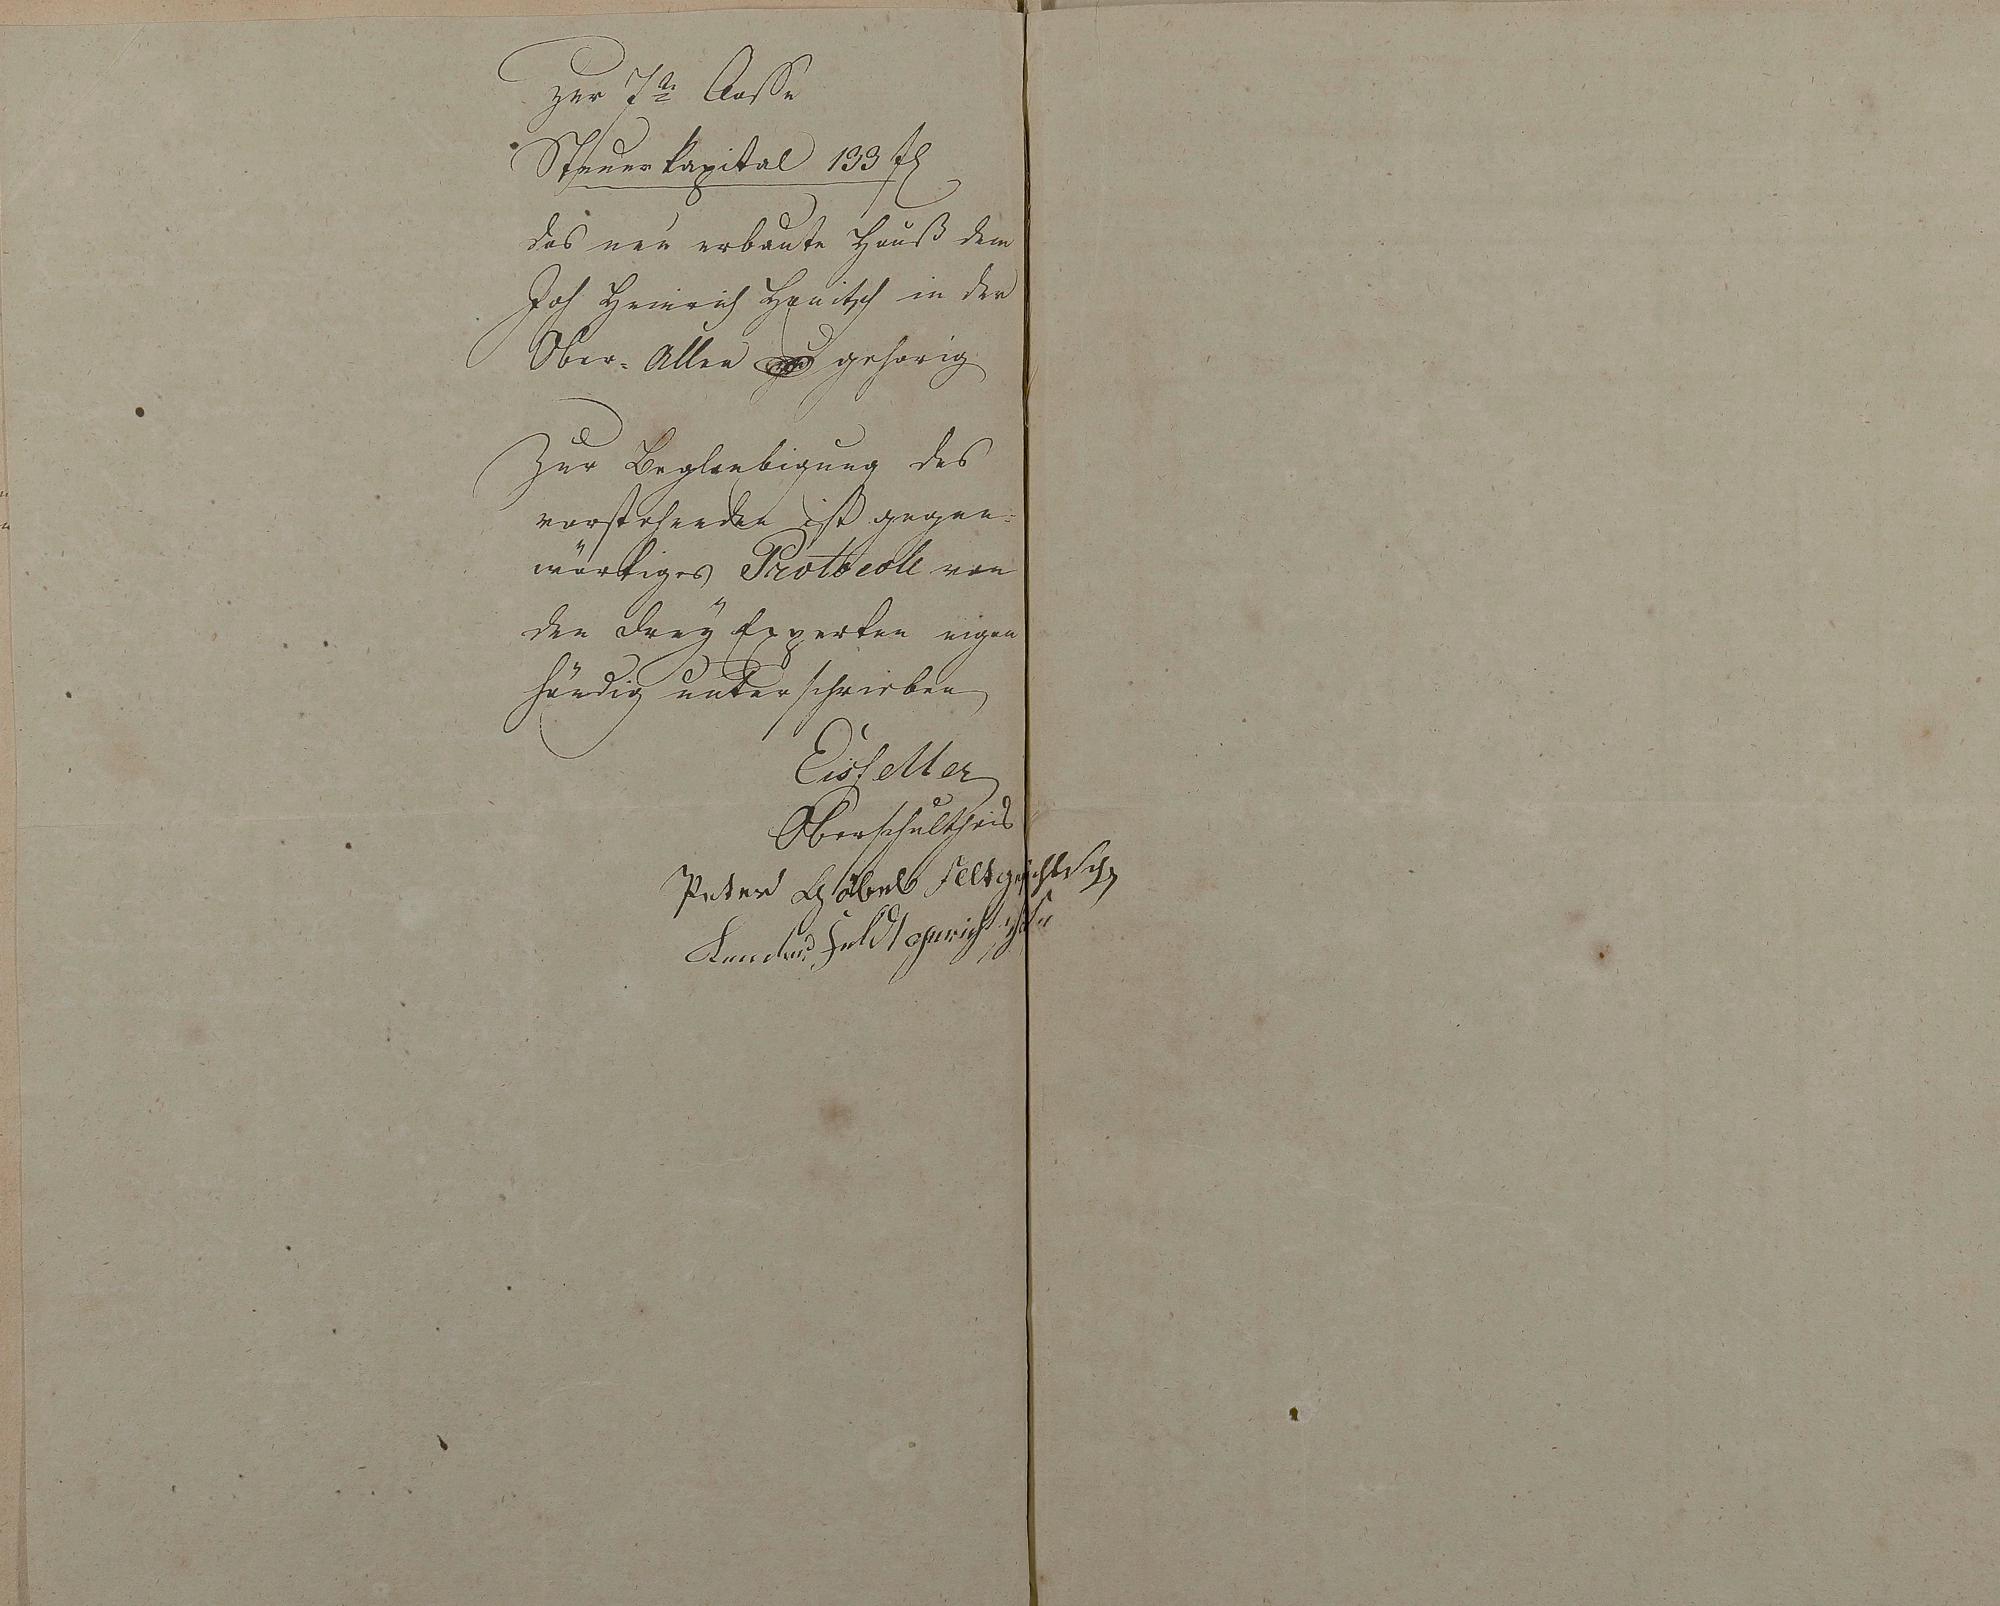 zur 7te Classe
Steuerkapital 133 fl
das neu erbaute Hauß dem
Joh Heinrich Hanitsch in der
Ober-Allee gehorig
Zur Beglaubigung des
vorstehenden ist gegen-
wärtiges Protocoll von
den drey Experten eigen
händig unterschrieben
Oberschultheis
Peter Göbel
Feldgericht